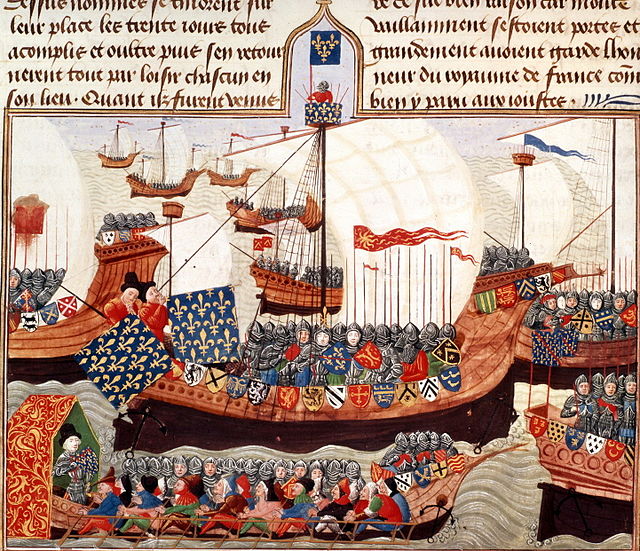 dessus nommes se tindrent sur
leur place les trente iours tous
acomplis et oultre puis sen retour
nerent tout par loisir chascun en
son lieu. Quant ilz furent venus
re ce fut bien raison car moult
vaillamment sestoient portez et
grandement auoient garde lhon
neur du royaume de france com
bien y paru aux ioustes.